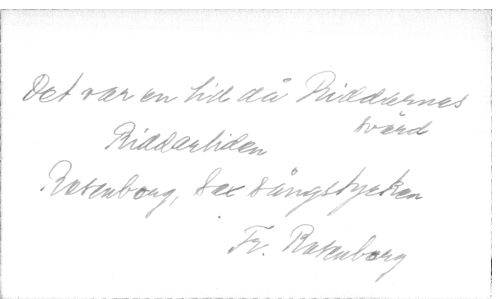 Det var en tid då Riddarnes
svärd
Riddartiden
Rosenborg, Sex sångstycken
Fr. Rosenborg